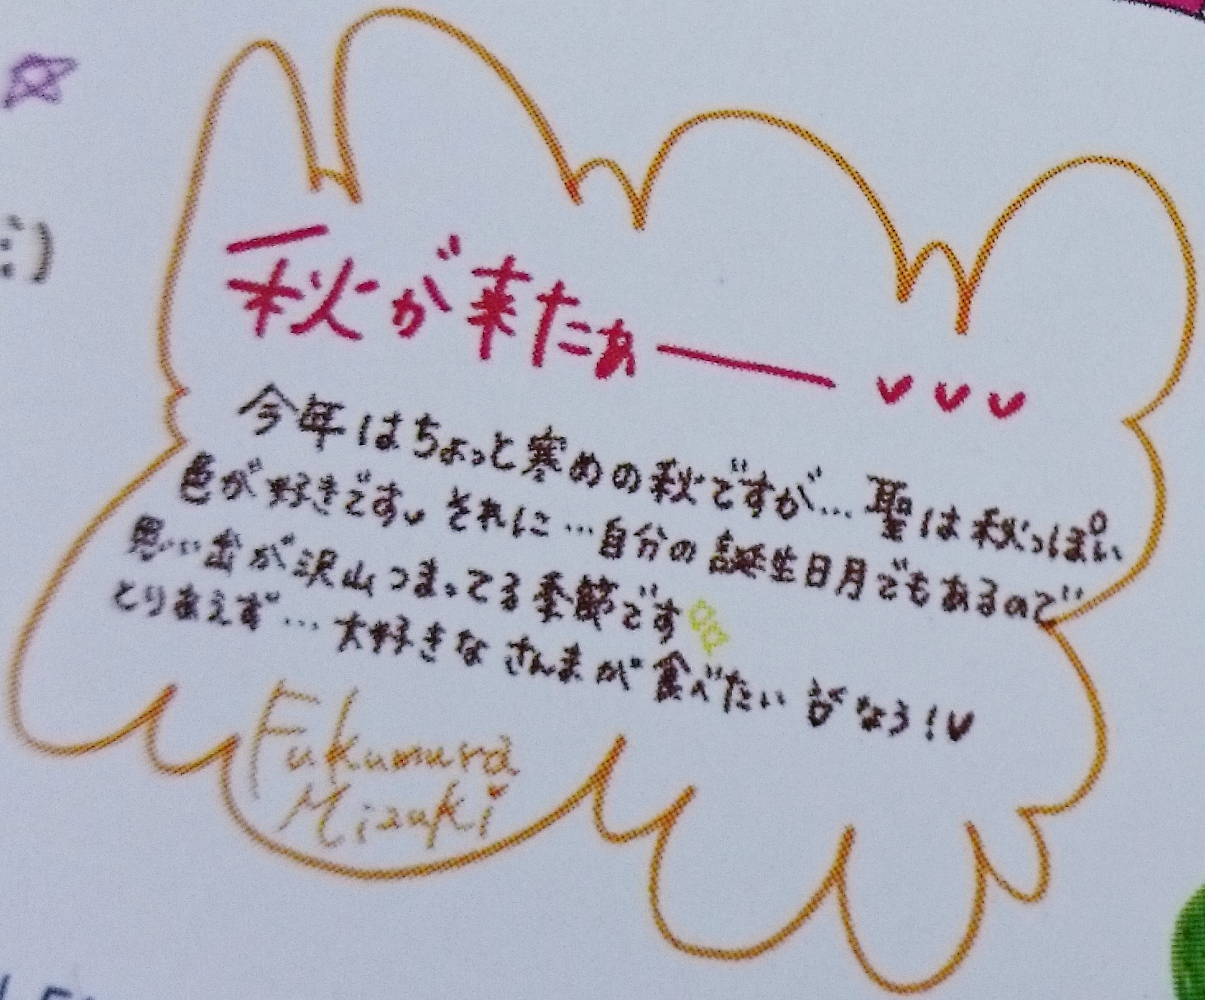 秋が来たぁ———♥♥♥
今年はちょっと寒めの秋ですが…聖は秋っぽい
色が好きです♥それに…自分の誕生日月でもあるので
思い出が沢山つまってる季節です
とりあえず…大好きなさんまが食べたい なう!♥
Fukumura
Mizuki